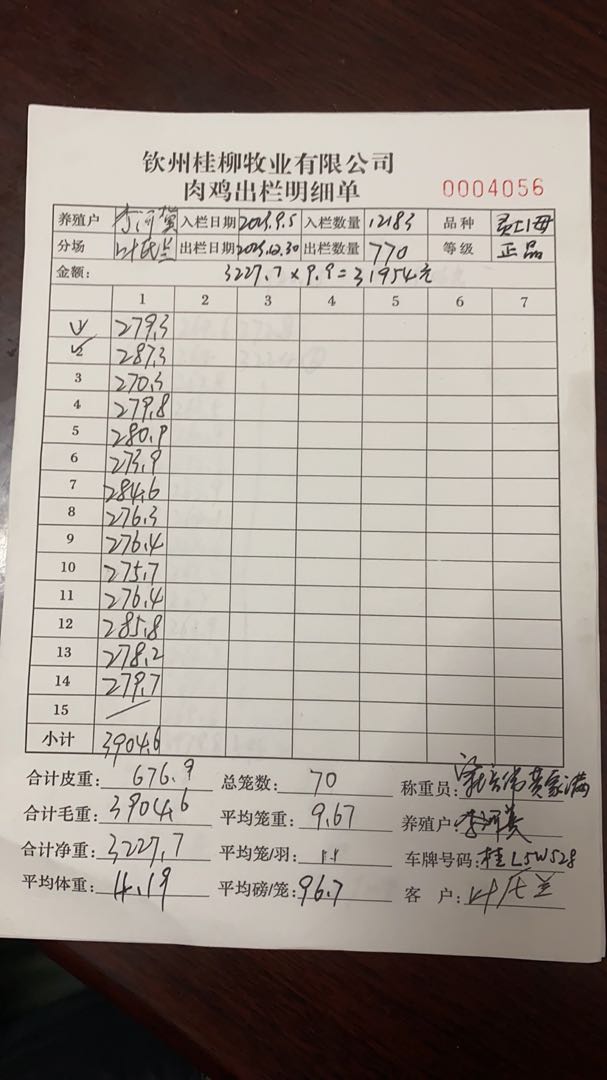 钦州桂柳牧业有限公司
肉鸡出栏明细单 0004056
养殖户 李河 入栏日期 2023.9.5 入栏数量 12183 品种 灵上母
分场 叶 兰 出栏日期 2023.12.30 出栏数量 770 等级 正品
金额: 3227.7×9.9=31954元
1 2 3 4 5 6 7
1 279.3
2 287.3
3 270.3
4 279.8
5 280.9
6 273.9
7 284.6
8 276.3
9 276.4
10 275.7
11 276.4
12 285.8
13 278.2
14 279.7
15 /
小计 3904.6
合计皮重: 676.9 总笼数: 70 称重员: 黄家满
合计毛重: 3904.6 平均笼重: 9.67 养殖户: 李河
合计净重: 3227.7 平均笼/羽: 11 车牌号码: 桂L5W528
平均体重: 4.19 平均磅/笼: 96.7 客 户: 叶 兰